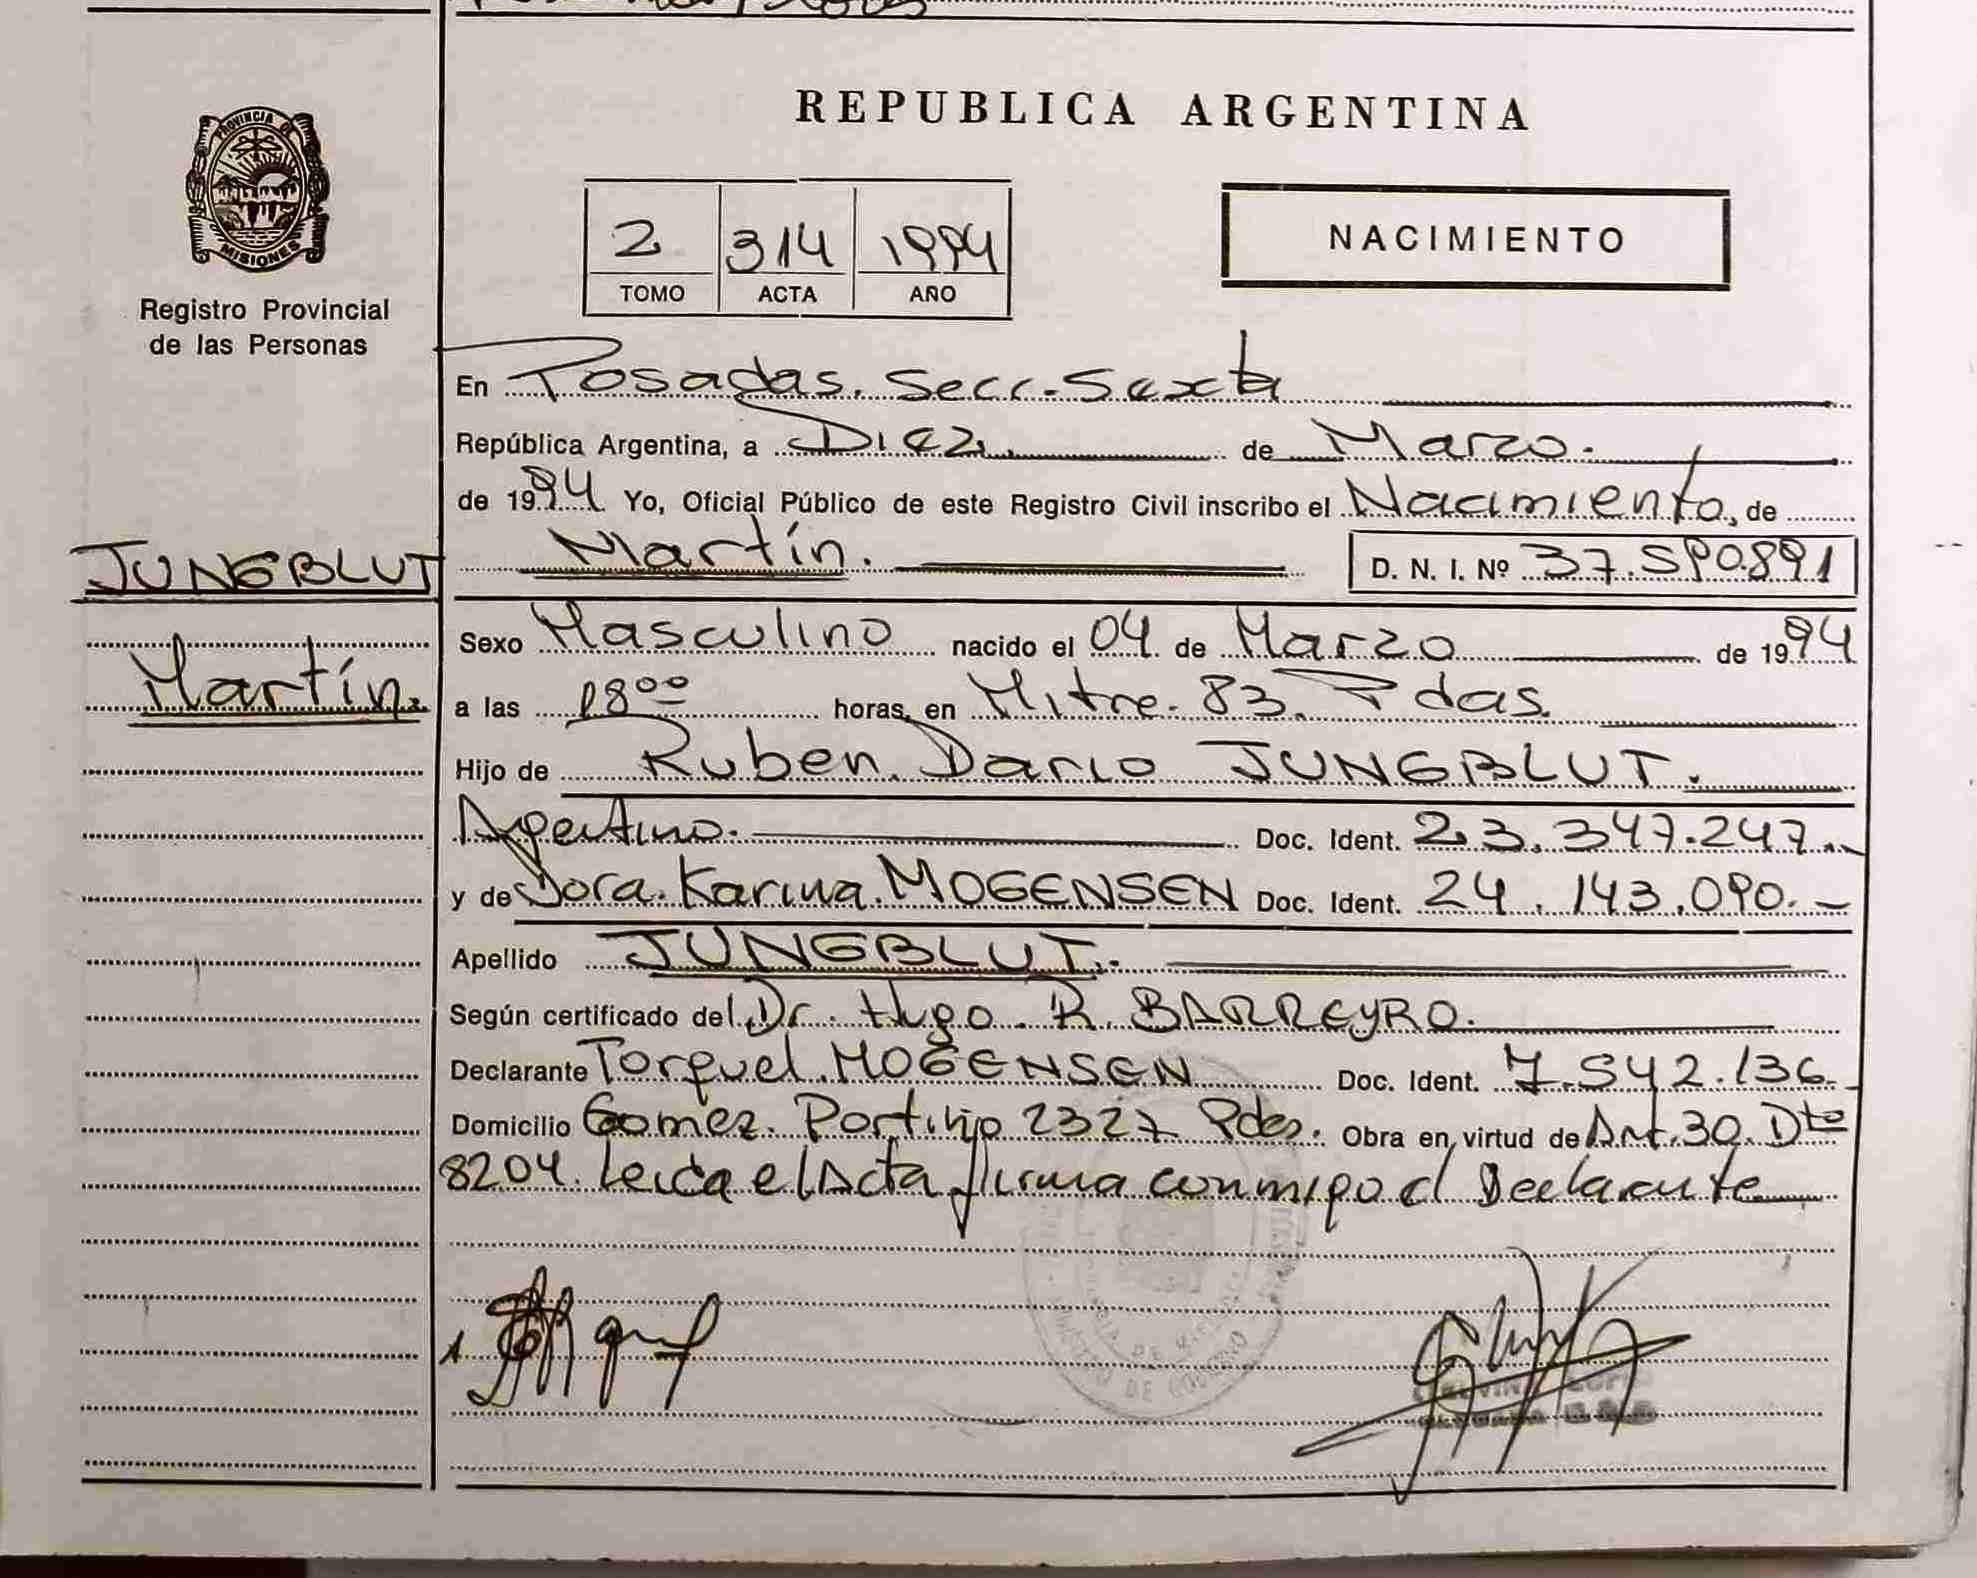 PROVINCIA DE
MISIONES
Registro Provincial
de las Personas
JUNGBLUT
Martín.
REPUBLICA ARGENTINA
2 314 1994
TOMO ACTA AÑO
NACIMIENTO
En Posadas. Secc. Sexta
República Argentina, a Diez de Marzo.
de 1994 Yo, Oficial Público de este Registro Civil inscribo el Nacimiento, de
Martín. D. N. I. Nº 37.590.891
Sexo Masculino nacido el 04 de Marzo de 1994
a las 18⁰⁰ horas, en Mitre. 83. Pdas.
Hijo de Ruben. Dario JUNGBLUT.
Argentino. Doc. Ident. 23.347.247.-
y de Dora. Karina. MOGENSEN Doc. Ident. 24.143.090.-
Apellido JUNGBLUT.
Según certificado del Dr. Hugo. R. BARREYRO.
Declarante Torquel. MOGENSEN Doc. Ident. 7.542.136.-
Domicilio Gomez. Portinjo 2327 Pdas. Obra en virtud de Art. 30. Dto
8204. Leida el Acta firma conmigo el Declarante